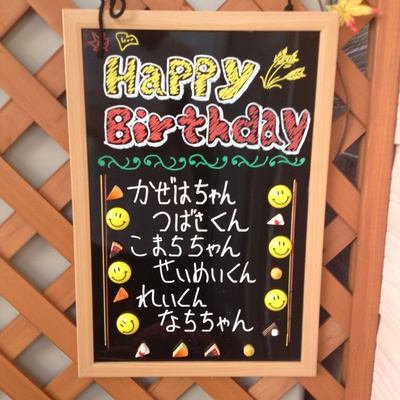 Happy
Birthday
かぜはちゃん
つばさくん
こまちちゃん
せいめいくん
れいくん
なちちゃん